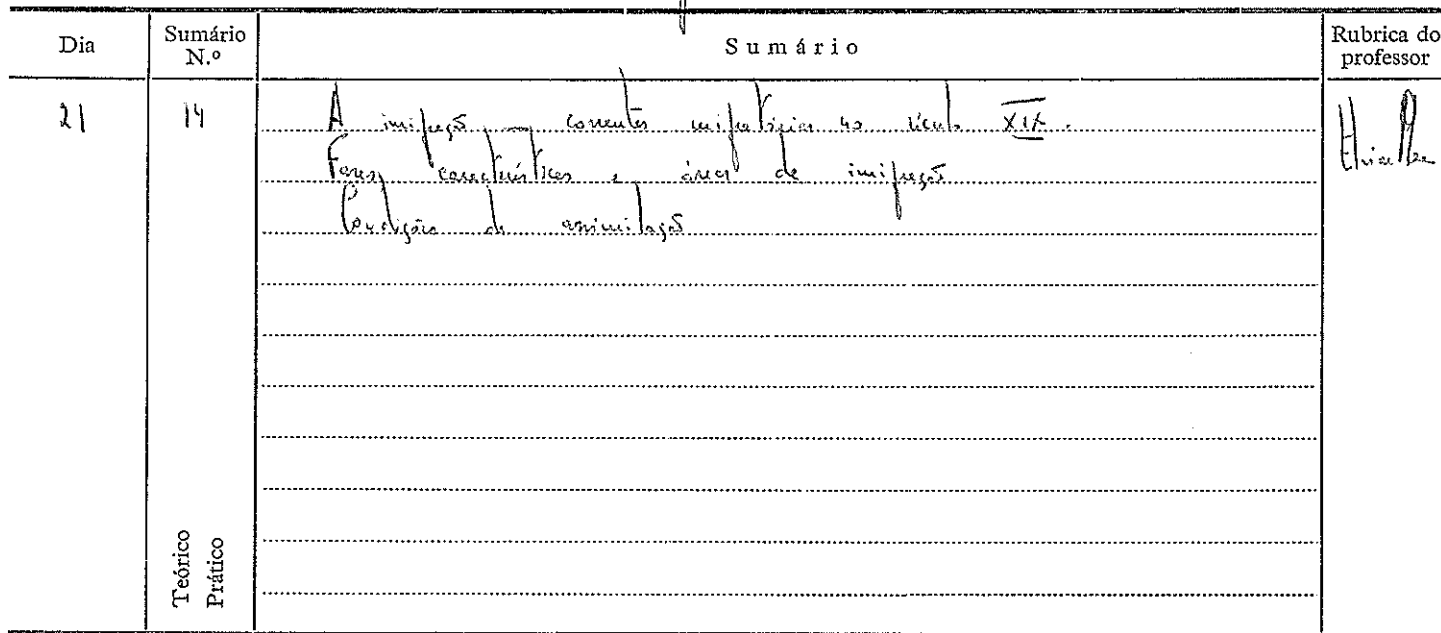 Dia Sumário N.º Sumário Rubrica do professor
21 14 A imigração — correntes migratórias no século XIX.
Fases, características e áreas de imigração
Condições de assimilação
Teórico
Prático